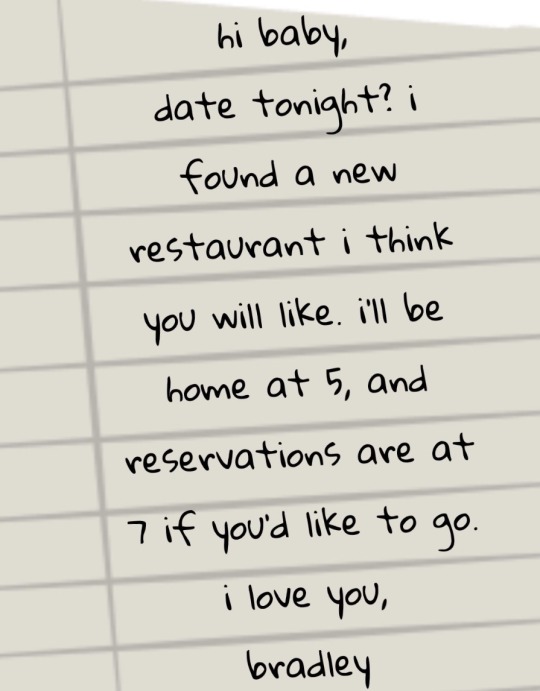 hi baby,
date tonight? i
found a new
restaurant i think
you will like. i'll be
home at 5, and
reservations are at
7 if you'd like to go.
i love you,
bradley